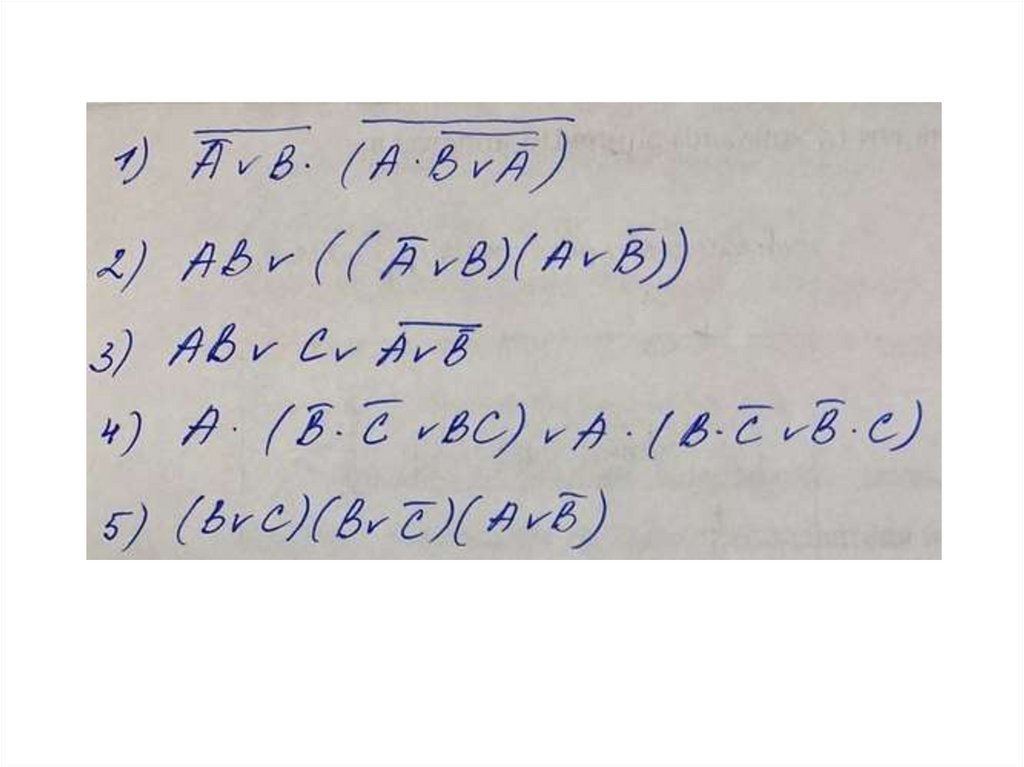 1) \overline{\overline{A} ∨ B} · \overline{(A · \overline{B ∨ \overline{A}})}
2) AB ∨ ((\overline{A} ∨ B)(A ∨ \overline{B}))
3) AB ∨ C ∨ \overline{A ∨ \overline{B}}
4) A · (\overline{B} · \overline{C} ∨ BC) ∨ A · (B · \overline{C} ∨ \overline{B} · C)
5) (B ∨ C)(B ∨ \overline{C})(A ∨ \overline{B})